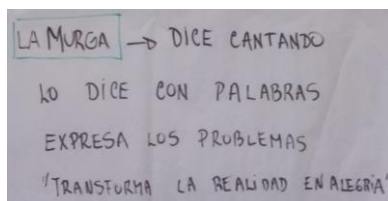 LA MURGA → DICE CANTANDO
LO DICE CON PALABRAS
EXPRESA LOS PROBLEMAS
"TRANSFORMA LA REALIDAD EN ALEGRÍA"